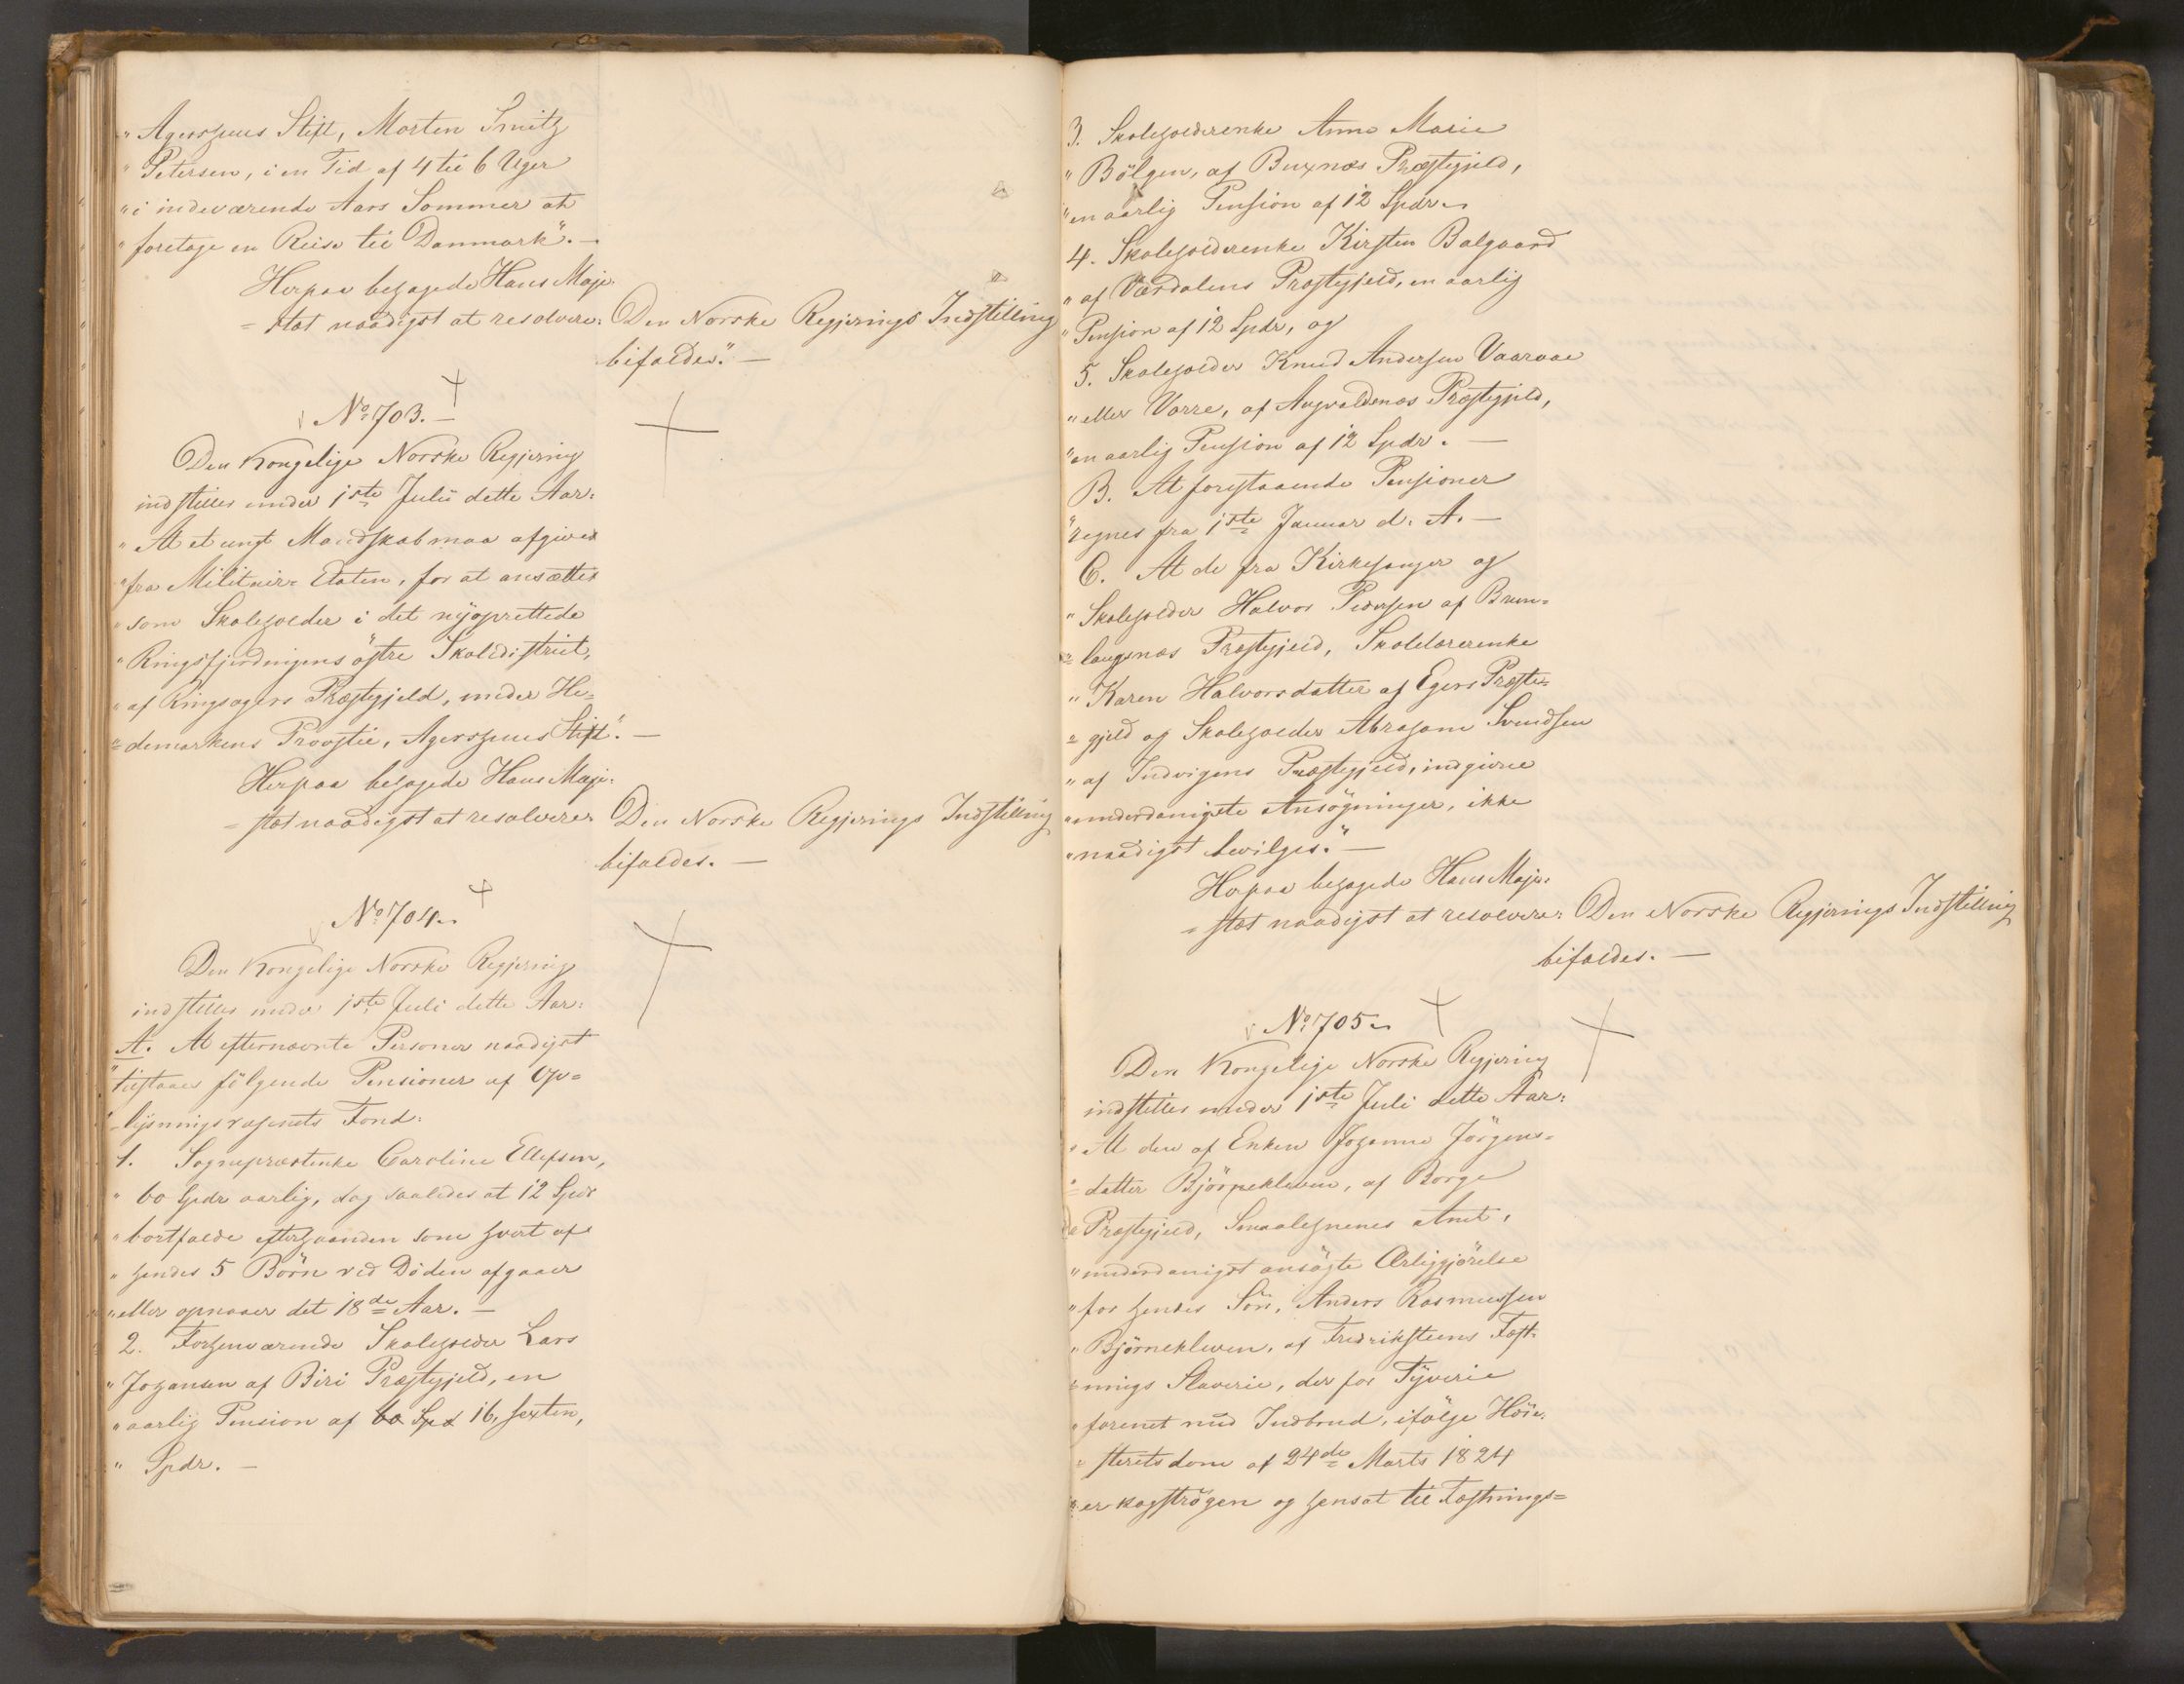 "Agershuus Stift, Morten Smith
"Petersen, i en Tid af 4 til 6 Uger
"i indeværende Aars Sommer at
"foretage en Reise til Danmark". —
Herpaa behagede Hans Maje-
=stæt naadigst at resolvere: Den Norske Regjerings Indstilling
bifaldes." —
No 703. —
Den Kongelige Norske Regjering
indstiller under 1ste Julii dette Aar:
"At et ungt Mandskab maa afgives
"fra Militair-Etaten, for at ansættes
"som Skoleholder i det nyoprettede
"Ringsfjerdingens östre Skoledistrict,
"af Ringsagers Præstegjeld, under He-
=demarkens Provstie, Agershuus Stift". —
Herpaa behagede Hans Maje-
=stæt naadigst at resolvere: Den Norske Regjerings Indstilling
bifaldes. —
No 704.
Den Kongelige Norske Regjering
indstiller under 1ste Juli dette Aar:
A. At efternævnte Personer naadigst
"tilstaaes fölgende Pensioner af Op=
=lysningsvæsenets Fond:
1. Sognepræstenke Caroline Ellefsen,
"60 Spdr aarlig, dog saaledes at 12 Spdr
"bortfalde efterhaanden som hvert af
"hendes 5 Börn ved Döden afgaaer
"eller opnaaer det 18de Aar. —
2. Forhenværende Skoleholder Lars
"Johansen af Biri Præstegjeld, en
"aarlig Pension af 60 Spd 16, sexten,
" Spdr. —
3. Skoleholderenke Anne Marie
"Bölgen, af Buxnæs Præstegjeld,
"en aarlig Pension af 12 Spdr.
4. Skoleholderenke Kirsten Balgaard
"af Værdalens Præstegjeld, en aarlig
"Pension af 12 Spdr, og
5. Skoleholder Knud Andersen Vaaraae
"eller Varre, af Augvaldsnæs Præstegjeld,
"en aarlig Pension af 12 Spdr. —
B. At forestaaende Pensioner
"regnes fra 1ste Januar d. A. —
C. At de fra Kirkesanger og
"Skoleholder Halvor Pedersen af Brun-
=laugnæs Præstegjeld, Skolelærerenke
"Karen Halvorsdatter af Egers Præste=
=gjeld og Skoleholder Abraham Svendsen
"af Indvigens Præstegjeld, indgivne
"underdanigste Ansögninger, ikke
"naadigst bevilges." —
Herpaa behagede Hans Maje-
=stæt naadigst at resolvere: Den Norske Regjerings Indstilling
bifaldes. —
No 705.
Den Kongelige Norske Regjering
indstiller under 1ste Juli dette Aar:
"At den af Enken Johanne Jörgens=
=datter Björneklewen, af Borge
"Præstegjeld, Smaalehnenes Amt,
"underdanigst ansögte Ærligjörelse
"for hendes Sön, Anders Rasmussen
"Björneklewen, af Fredriksteens Fæst-
=nings Slaverie, der for Tyverie
"forenet med Indbrud, ifölge Höie-
=sterets dom af 24de Marts 1824
"er kagströgen og hensat til Fæstnings=